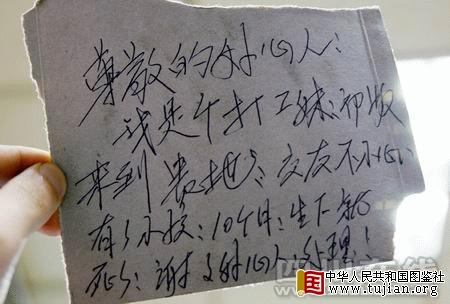 尊敬的好心人：
我是个打工妹：初次
来到贵地：交友不小心：
有了小孩：10个月：生下就
死了：谢好心人处理！
中华人民共和国图鉴社
www.tujian.org